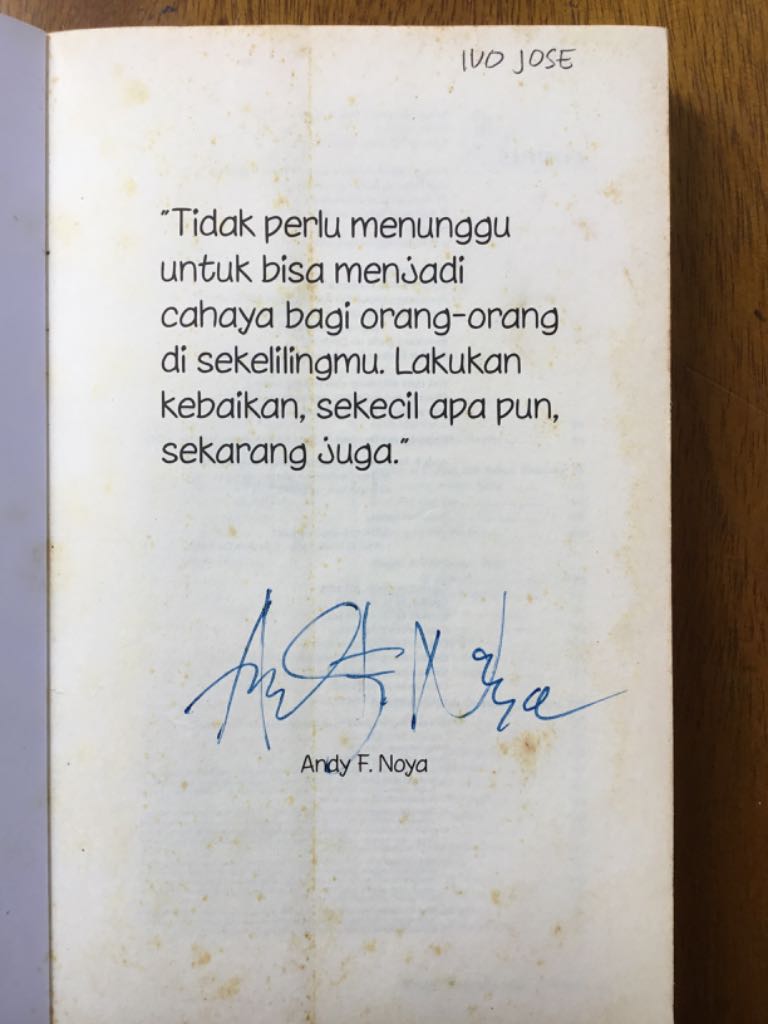 IVO JOSE
"Tidak perlu menunggu
untuk bisa menjadi
cahaya bagi orang-orang
di sekelilingmu. Lakukan
kebaikan, sekecil apa pun,
sekarang juga."
Andy Noya
Andy F. Noya